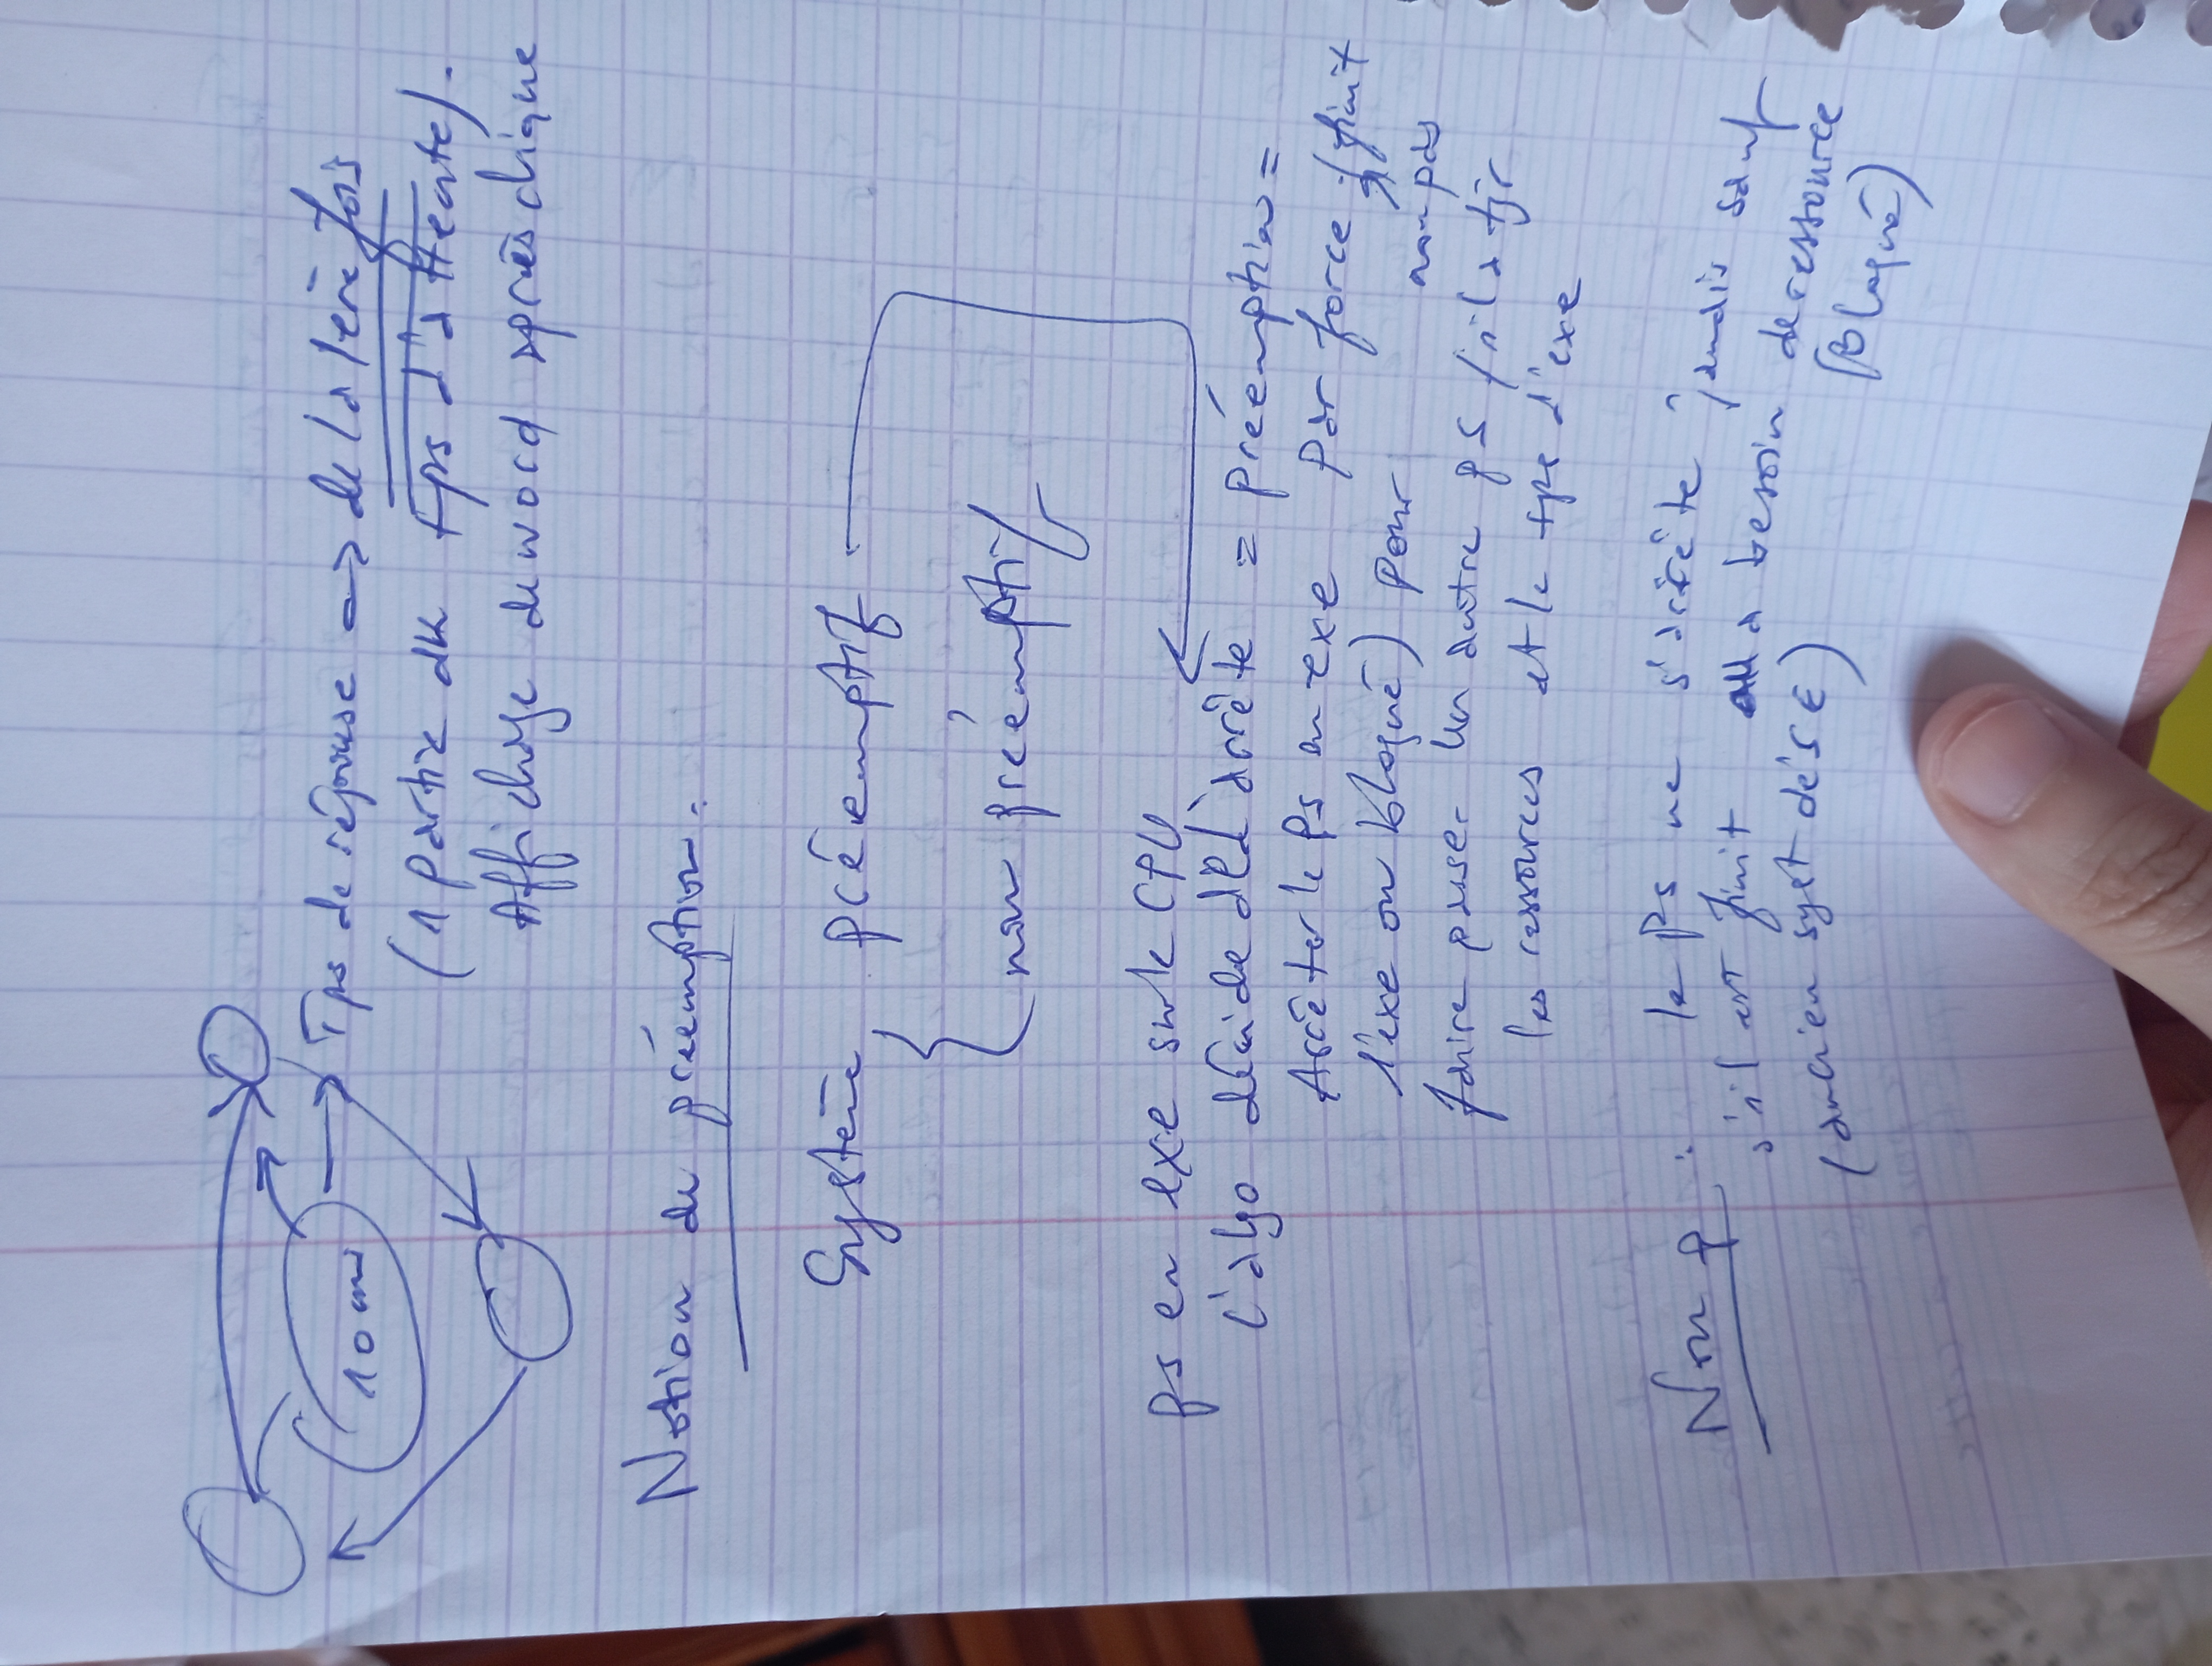 10 ms
Tps de réponse => de la 1ère fois
(1 partie du tps d'attente).
Affichage de word après clique
Notion de préemption :
Système préemptif
non préemptif
ps en exe sur le CPU
l'algo décide de l'arrêté = préemption =
Arrêter le ps en exe par force (finit
l'exe ou bloqué) pour non pas
faire passer un autre ps / il a tjr
les ressources et le tps d'exe
Non p : le Ps ne s'arrête jamais sauf
s'il est finit a besoin de ressource
(ancien syst de S E) (Bloqué)